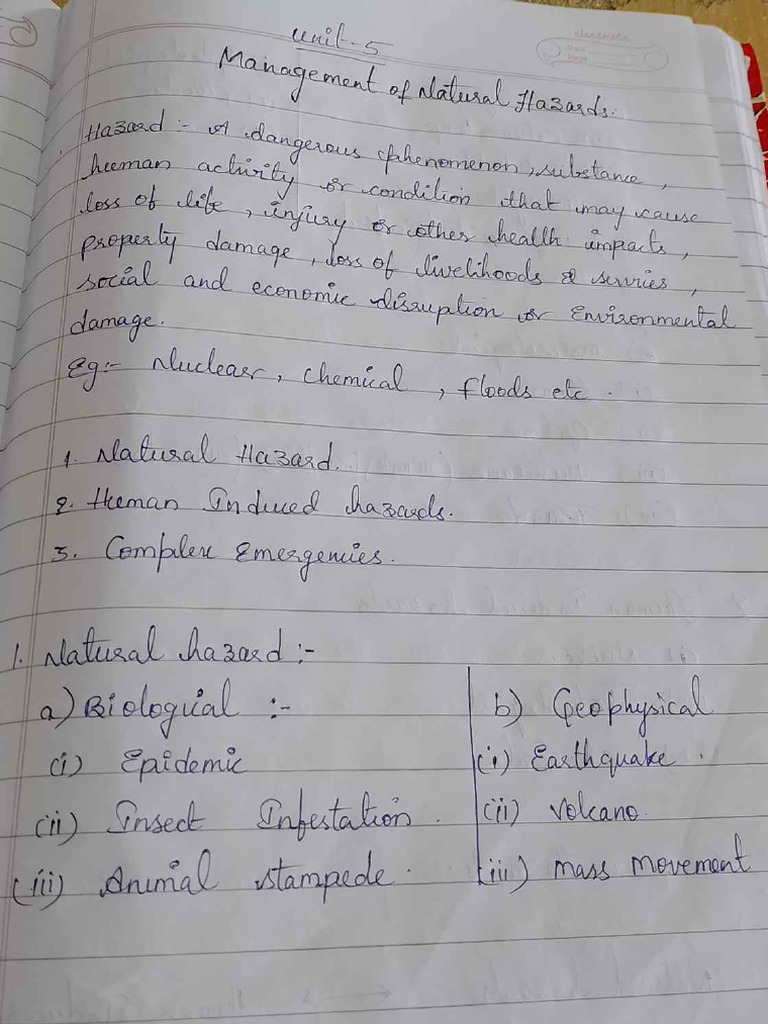 Unit-5
Management of Natural Hazards.
Hazard :- A dangerous phenomenon, substance,
human activity or condition that may cause
loss of life, injury or other health impacts,
property damage, loss of livelihoods & servies,
social and economic disruption or Environmental
damage.
Eg:- Nuclear, chemical, floods etc.
1. Natural Hazard.
2. Human Induced hazards.
3. Complex Emergencies.
1. Natural hazard :-
a) Biological :-
(i) Epidemic
(ii) Insect Infestation.
(iii) Animal stampede.
b) Geophysical
(i) Earthquake.
(ii) Volcano.
(iii) mass movement